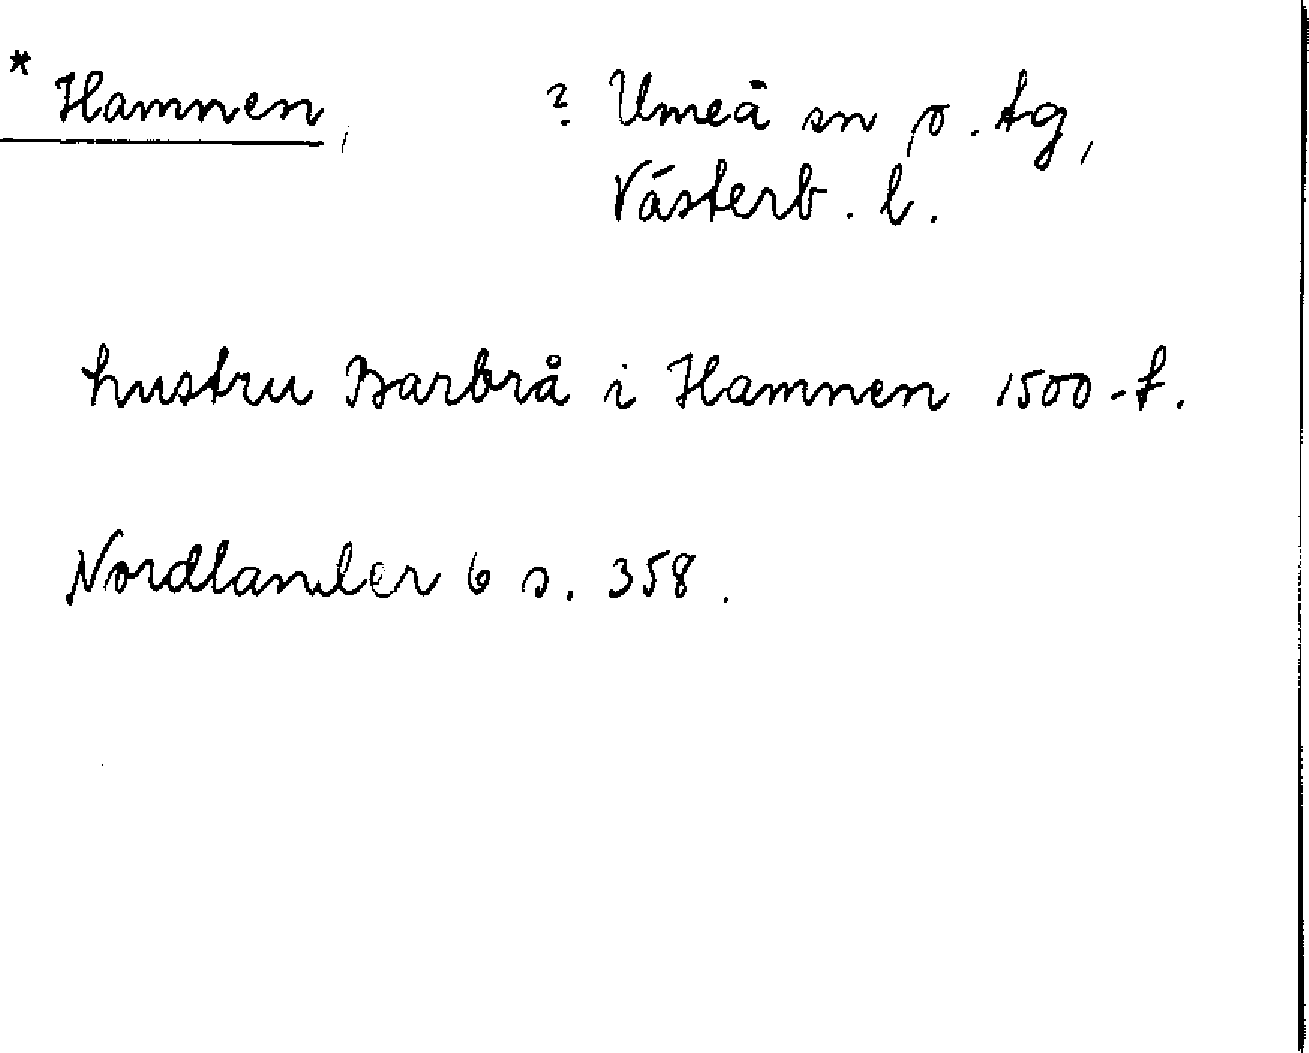 * Hamnen, ? Umeå sn o. tg,
Västerb. l.
hustru Barbrå i Hamnen 1500-t.
Nordlander 6 s. 358.